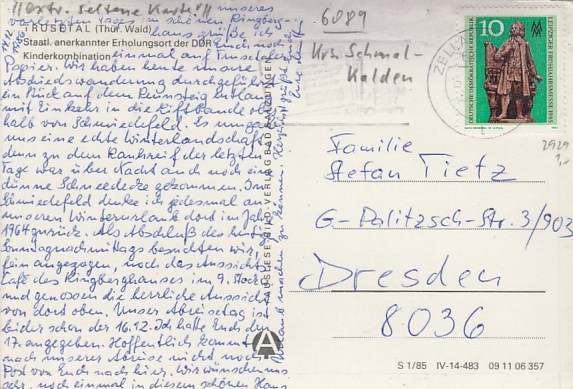 !!extr. seltene Karte!!
6089
Krs. Schmal-
kalden
TRUSETAL (Thür. Wald)
Staatl. anerkannter Erholungsort der DDR
Kinderkombination
unseres
vorletzten Tages im schönen Ringberg-
haus grüße ich
Euch noch
einmal auf Trusetal-
Papier. Wir haben heute unsere
Abschiedswanderung durchgeführt
ein Stück auf dem Rennsteig entlang
mit Einkehr in die Liftbaude ober-
halb von Schmiedefeld. Es umgab
uns eine echte Winterlandschaft,
denn zu dem Rauhreif der letzten
Tage war über Nacht auch noch eine
dünne Schneedecke gekommen. In
Schmiedefeld denke ich jedesmal an
unseren Winterurlaub dort im Jahr
1964 zurück. Als Abschluß des heutigen
Sonntagnachmittags besuchten wir,
fein angezogen, noch das Aussichts-
café des Ringberghauses im 9. Stock
und genossen die herrliche Aussicht
von dort oben. Unser Abreisetag ist
leider schon der 16.12. Ich hatte Euch den
17. angegeben. Hoffentlich kommt
nach unserer Abreise nicht noch
Post von Euch nach hier. Wir wünschen uns
sehr, noch einmal in diesem schönen Haus
Urlaub machen zu können. Herzlichst grüßt Euch
AUSLESE-BILD-VERLAG BAD SALZUNGEN
A
ZELLA
10
DEUTSCHE DEMOKRATISCHE REPUBLIK
LEIPZIGER FRÜHJAHRSMESSE 1985
2929
1,-
Familie
Stefan Tietz
G.-Palitzsch-Str. 3/903
Dresden
8036
S 1/85 IV-14-483 09 11 06 357